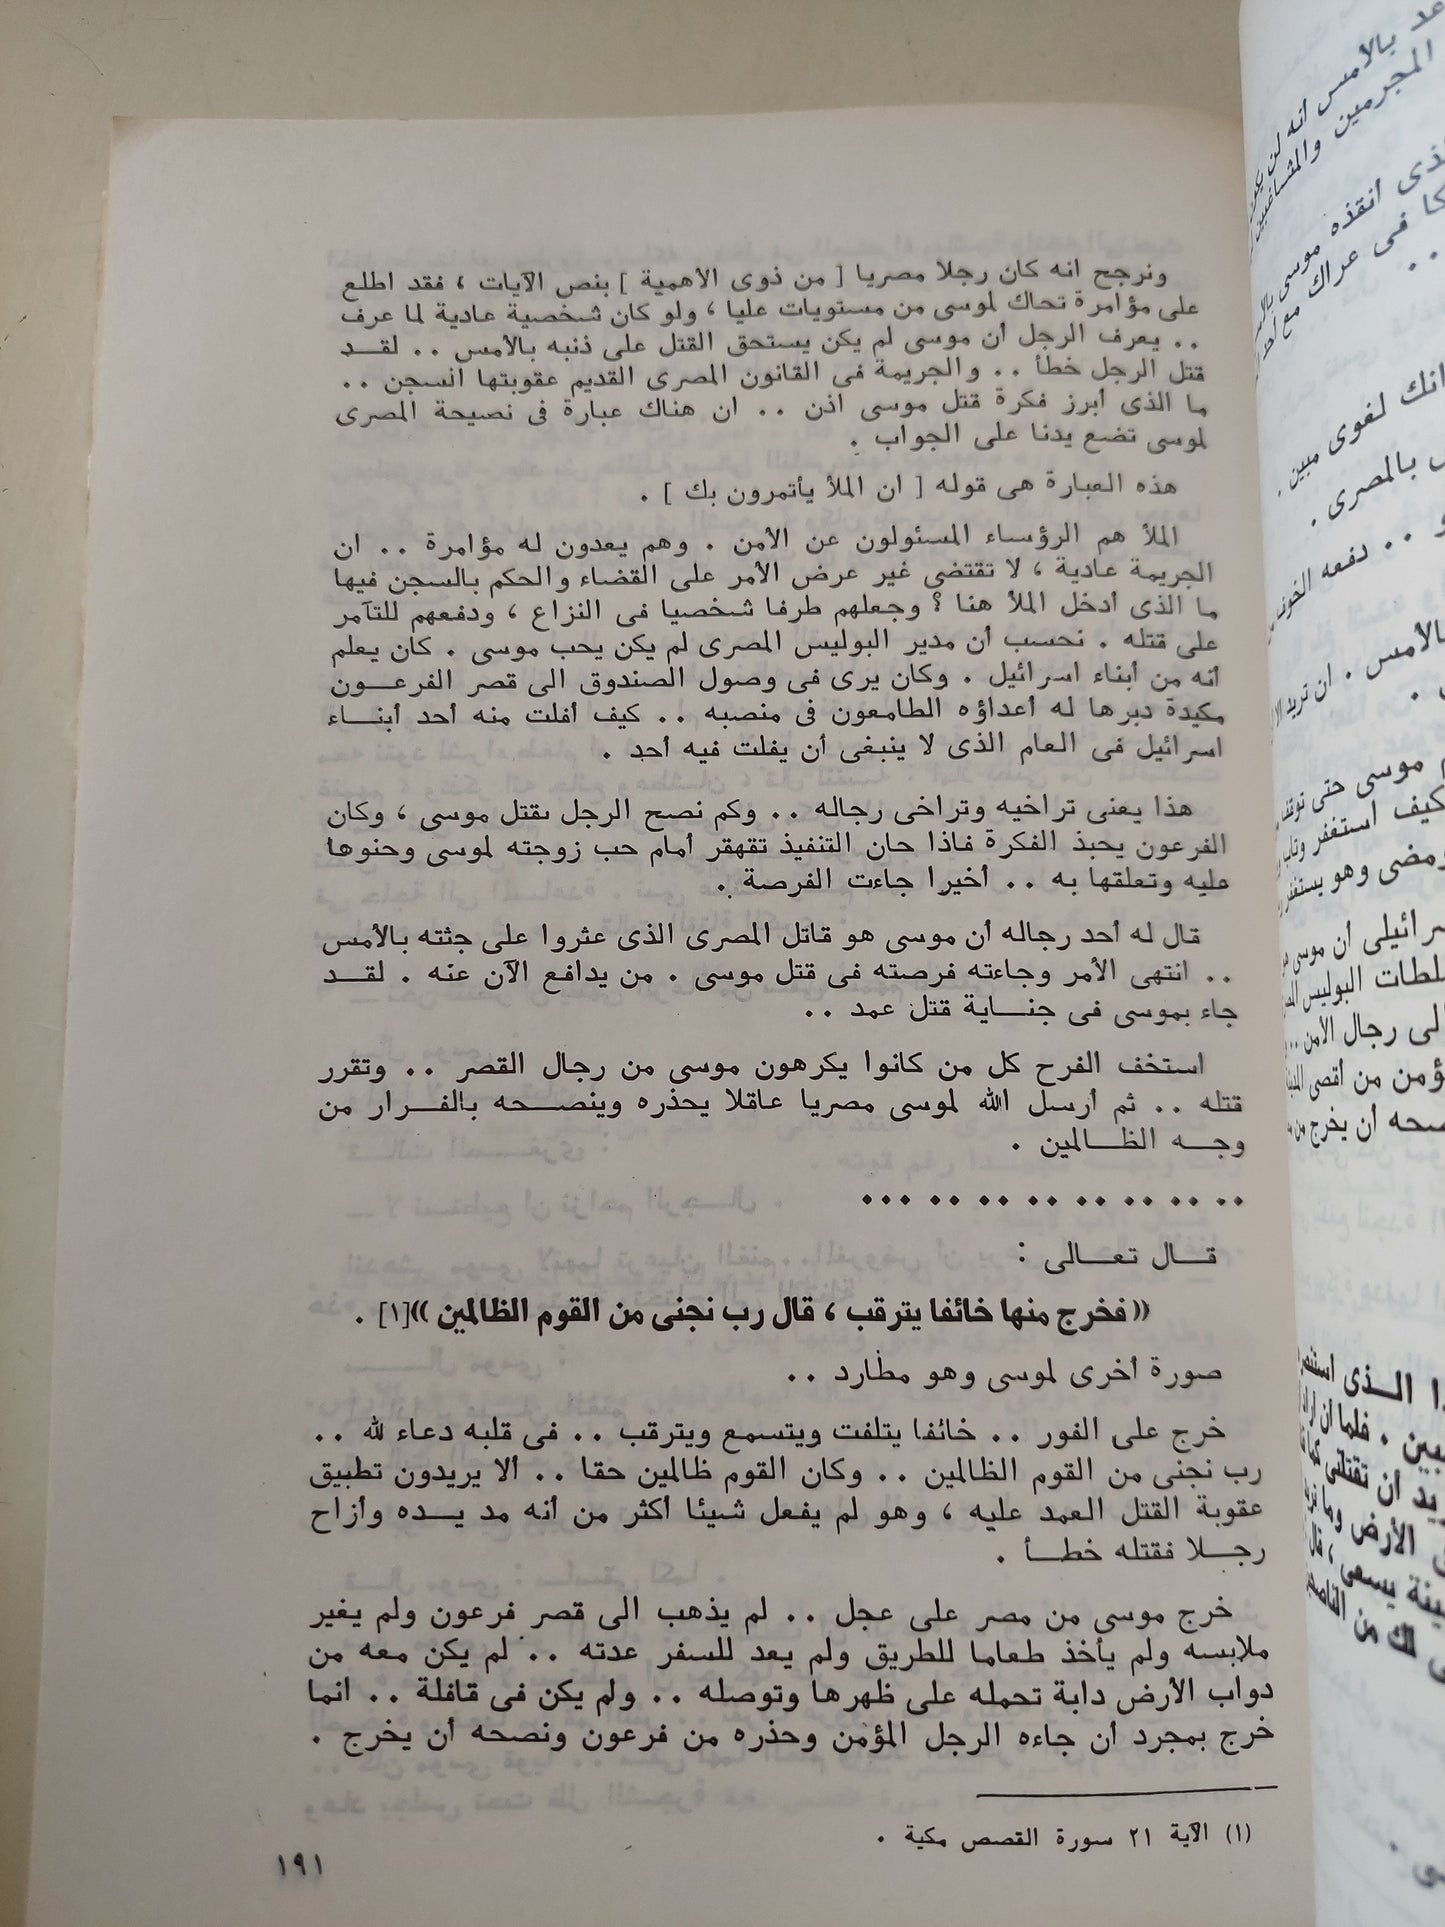 ونرجح انه كان رجلا مصريا [ من ذوى الأهمية ] بنص الآيات ، فقد اطلع
على مؤامرة تحاك لموسى من مستويات عليا ، ولو كان شخصية عادية لما عرف
.. يعرف الرجل أن موسى لم يكن يستحق القتل على ذنبه بالأمس .. لقـــد
قتل الرجل خطأ .. والجريمة فى القانون المصرى القديم عقوبتها السجن ..
ما الذى أبرز فكرة قتل موسى اذن .. ان هناك عبارة فى نصيحة المصرى
لموسى تضع يدنا على الجواب .
هذه العبارة هى قوله [ ان الملأ يأتمرون بك ] .
الملأ هم الرؤساء المسئولون عن الأمن . وهم يعدون له مؤامرة .. ان
الجريمة عادية ، لا تقتضى غير عرض الأمر على القضاء والحكم بالسجن فيها
ما الذى أدخل الملأ هنا ؟ وجعلهم طرفا شخصيا فى النزاع ، ودفعهم للتآمر
على قتله . نحسب أن مدير البوليس المصرى لم يكن يحب موسى . كان يعلم
أنه من أبناء اسرائيل . وكان يرى فى وصول الصندوق الى قصر الفرعــون
مكيدة دبرها له أعداؤه الطامعون فى منصبه .. كيف أفلت منه أحد أبنــاء
اسرائيل فى العام الذى لا ينبغى أن يفلت فيه أحد .
هذا يعنى تراخيه وتراخى رجاله .. وكم نصح الرجل بقتل موسى ، وكان
الفرعون يحبذ الفكرة فاذا حان التنفيذ تقهقر أمام حب زوجته لموسى وحنوها
عليه وتعلقها به .. أخيرا جاءت الفرصة .
قال له أحد رجاله أن موسى هو قاتل المصرى الذى عثروا على جثته بالأمس
.. انتهى الأمر وجاءته فرصته فى قتل موسى . من يدافع الآن عنه . لقـــد
جاء بموسى فى جنـــاية قتل عمد ..
استخف الفرح كل من كانوا يكرهون موسى من رجال القصر .. وتقرر
قتله .. ثم أرسل الله لموسى مصريا عاقلا يحذره وينصـــحه بالفــرار من
وجـــه الظـــالمين .
.. .. .. .. .. .. .. ...
قـــال تعـــالى :
(( فخرج منها خائفا يترقب ، قال رب نجنى من القوم الظالمين ))[١] .
صورة أخرى لموسى وهو مطارد ..
خرج على الفور .. خائفا يتلفت ويتسمع ويترقب .. فى قلبه دعاء لله ..
رب نجنى من القوم الظالمين .. وكان القوم ظالمين حقا .. ألا يريدون تطبيق
عقوبة القتل العمد عليه ، وهو لم يفعل شيئا أكثر من أنه مد يـــده وأزاح
رجـــلا فقتله خطـــأ .
خرج موسى من مصر على عجل .. لم يذهب الى قصر فرعون ولم يغير
ملابسه ولم يأخذ طعاما للطريق ولم يعد للسفر عدته .. لم يكن معه من
دواب الأرض دابة تحمله على ظهرها وتوصله .. ولم يكن فى قافلة .. انما
خرج بمجرد أن جاءه الرجل المؤمن وحذره من فرعون ونصحه أن يخرج .
(١) الآية ٢١ سورة القصص مكية .
١٩١
بالأمس أنه لن
المجرمين والمشاغبين
أنقذه موسى
فى عراك مع
انك لغوى مبين .
بالمصرى .
.. دفعه
بالأمس . ان تريد
موسى حتى
كيف استغفر
ومضى وهو يستغفر
أن موسى
البوليس
رجال الأمن ..
من أقصى
أن يخرج من
الـــذى
. فلما ان
أن تقتلنى
الأرض وما
يسعى ، قال
لك من